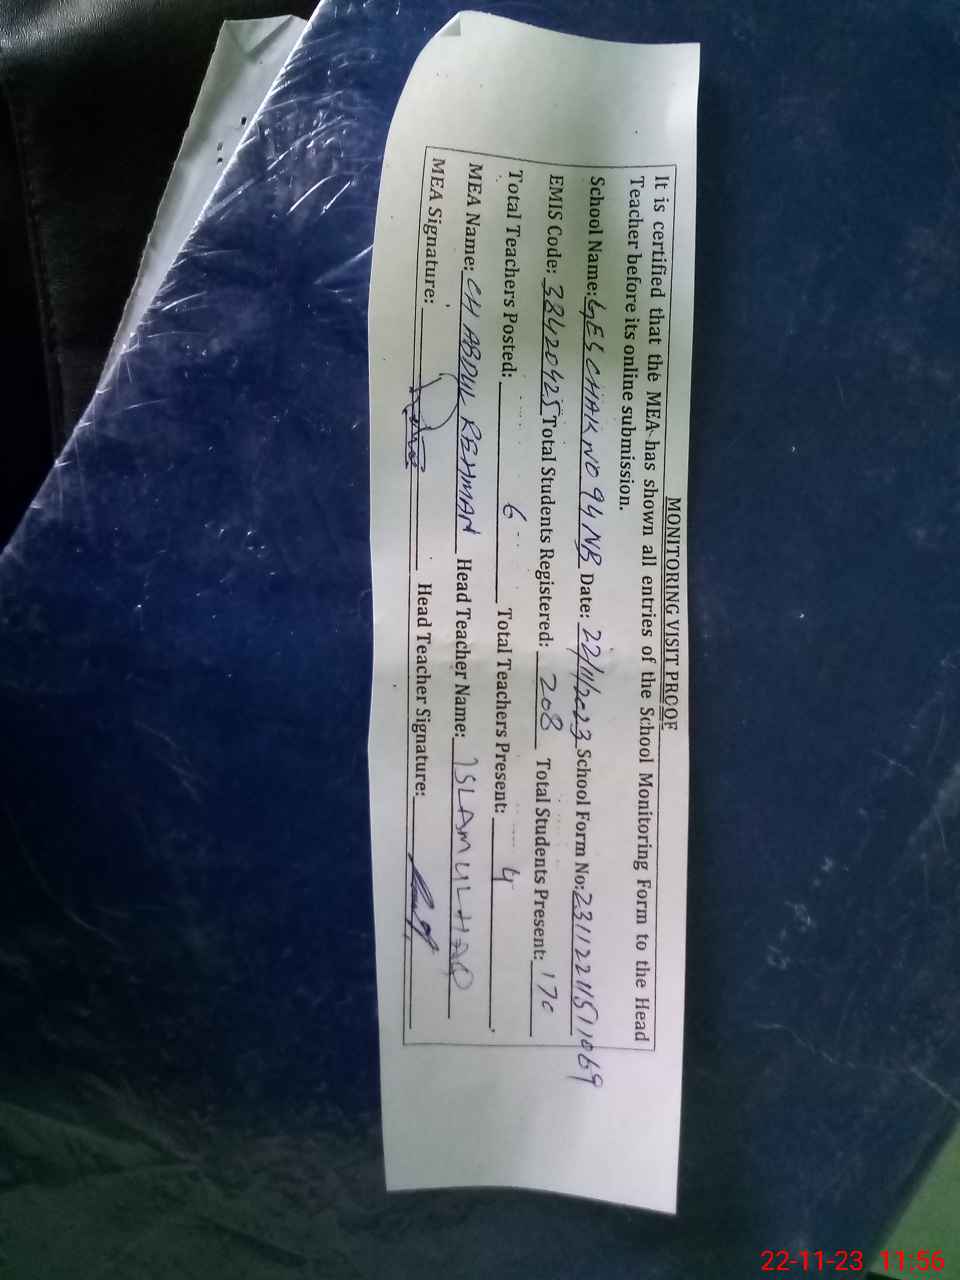 MONITORING VISIT PROOF
It is certified that the MEA has shown all entries of the School Monitoring Form to the Head
Teacher before its online submission.
School Name: GES CHAK NO 94 NB Date: 22/11/2023 School Form No: 23112211511069
EMIS Code: 38420425 Total Students Registered: 208 Total Students Present: 170
Total Teachers Posted: 6 Total Teachers Present: 4
MEA Name: CH ABDUL REHMAN Head Teacher Name: ISLAM UL HAQ
MEA Signature: Head Teacher Signature:
22-11-23 11:56